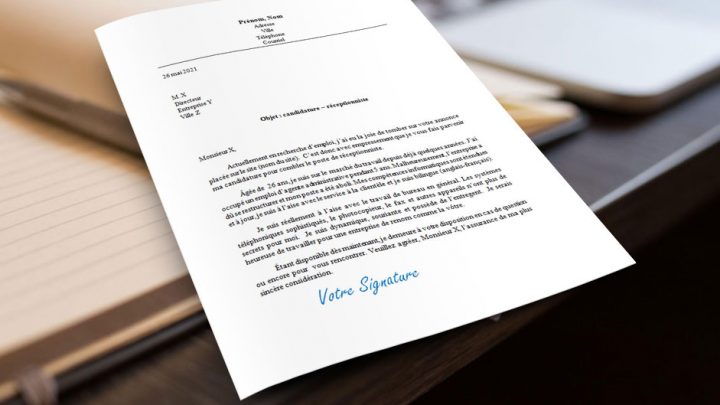 Prénom, Nom
Adresse
Ville
Téléphone
Courriel
26 mai 2021
M. X
Directeur
Entreprise Y
Ville Z
Objet : candidature – réceptionniste
Monsieur X,
Actuellement en recherche d'emploi, j'ai eu la joie de tomber sur votre annonce
placée sur le site (nom du site). C'est donc avec empressement que je vous fais parvenir
ma candidature pour combler le poste de réceptionniste.
Âgée de 26 ans, je suis sur le marché du travail depuis déjà quelques années. J'ai
occupé un emploi d'agente administrative pendant 5 ans. Malheureusement, l'entreprise a
dû se restructurer et mon poste a été aboli. Mes compétences informatiques sont étendues
et à jour, je suis à l'aise avec le service à la clientèle et je suis bilingue (anglais-français).
Je suis réellement à l'aise avec le travail de bureau en général. Les systèmes
téléphoniques sophistiqués, le photocopieur, le fax et autres appareils n'ont plus de
secrets pour moi. Je suis dynamique, souriante et possède de l'entregent. Je serais
heureuse de travailler pour une entreprise de renom comme la vôtre.
Étant disponible dès maintenant, je demeure à votre disposition en cas de question
ou encore pour vous rencontrer. Veuillez agréer, Monsieur X, l'assurance de ma plus
sincère considération.
Votre Signature